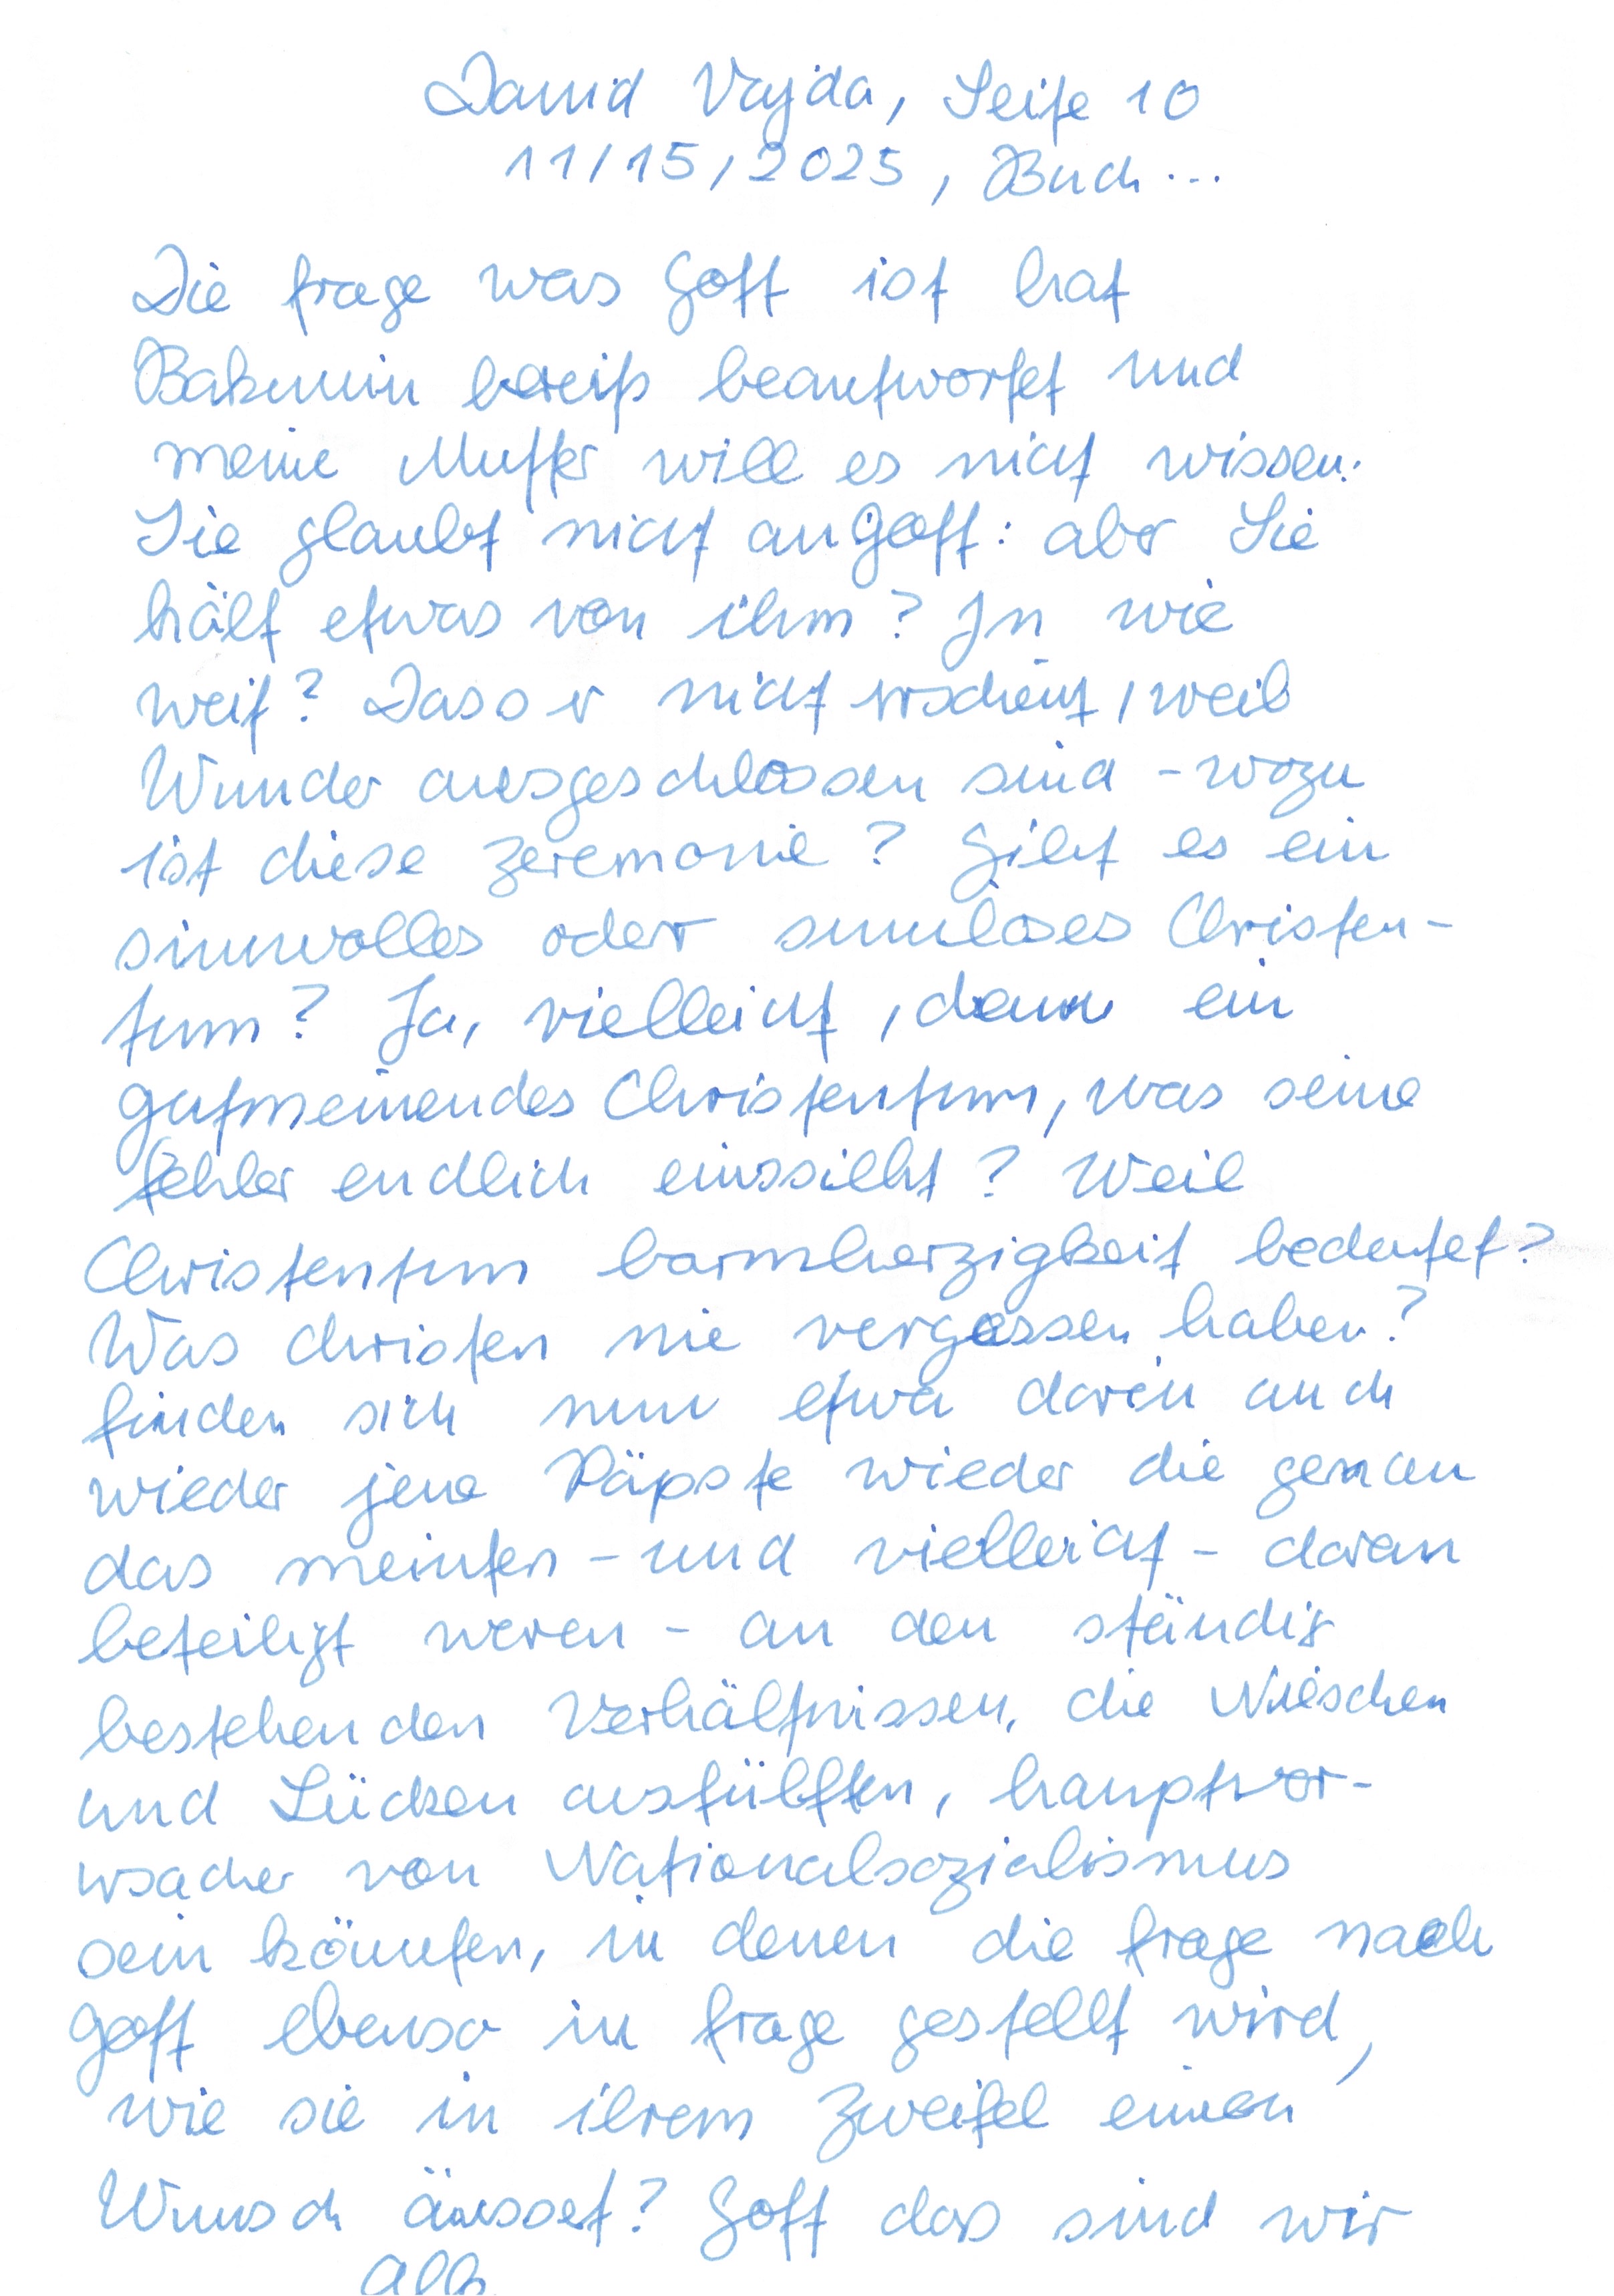 David Vajda, Seite 10
11/15/2025, Buch...
Die frage was Gott ist hat
Bakunin bereits beantwortet und
meine Mutter will es nicht wissen.
Sie glaubt nicht an Gott: aber Sie
hält etwas von ihm? In wie
weit? Dass er nicht erscheint, weil
Wunder ausgeschlossen sind - wozu
ist diese Zeremonie? Gibt es ein
sinnvolles oder sinnloses Christen-
tum? Ja, vielleicht, dann ein
gutmeinendes Christentum, was seine
fehler endlich einssieht? Weil
Christentum barmherzigkeit bedeutet?
Was christen nie vergessen haben?
finden sich nun etwa darin auch
wieder jene Päpste wieder die genau
das meinten - und vielleicht - daran
beteiligt waren - an den ständig
bestehenden Verhältnissen, die Nieschen
und Lücken ausfüllten, hauptver-
ursacher von Nationalsozialismus
sein könnten, in denen die frage nach
Gott ebenso in frage gestellt wird,
wie sie in ihrem Zweifel einen
Wunsch äussert? Gott das sind wir
alle